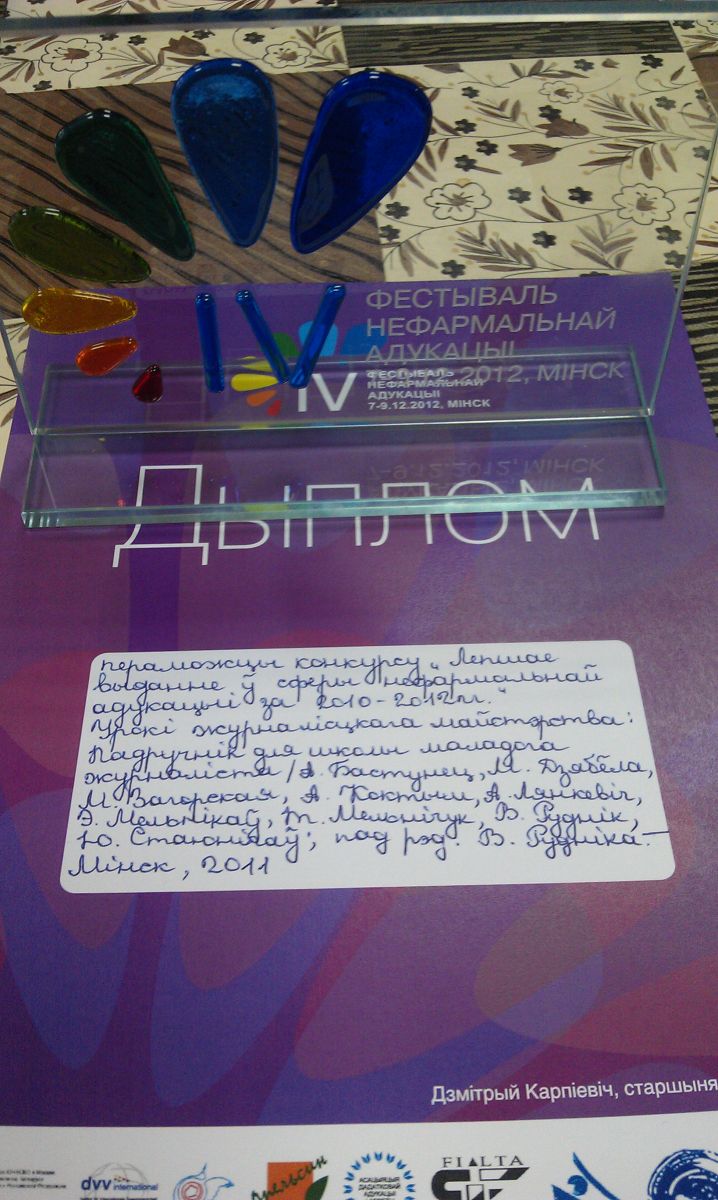 IV
ФЕСТЫВАЛЬ
НЕФАРМАЛЬНАЙ
АДУКАЦЫІ
2012, МІНСК
IV
ФЕСТЫВАЛЬ
НЕФАРМАЛЬНАЙ
АДУКАЦЫІ
7-9.12.2012, МІНСК
Дыплом
пераможцы конкурсу „Лепшае
выданне ў сферы нефармальнай
адукацыі за 2010-2012 гг."
Урокі журналісцкага майстэрства:
Падручнік для школы маладога
журналіста / А. Бастунец, М. Дзябёла,
М. Загорская, А. Коктыш, А. Лянкевіч,
Э. Мельнікаў, Т. Мельнічук, В. Руднік,
Ю. Стаюнікаў; пад рэд. В. Рудніка. –
Мінск, 2011
Дзмітрый Карпіевіч, старшыня
dvv international
Апельсин
АСАЦЫЯЦЫЯ
ДАДАТКОВАЙ
АДУКАЦЫІ
FIALTA